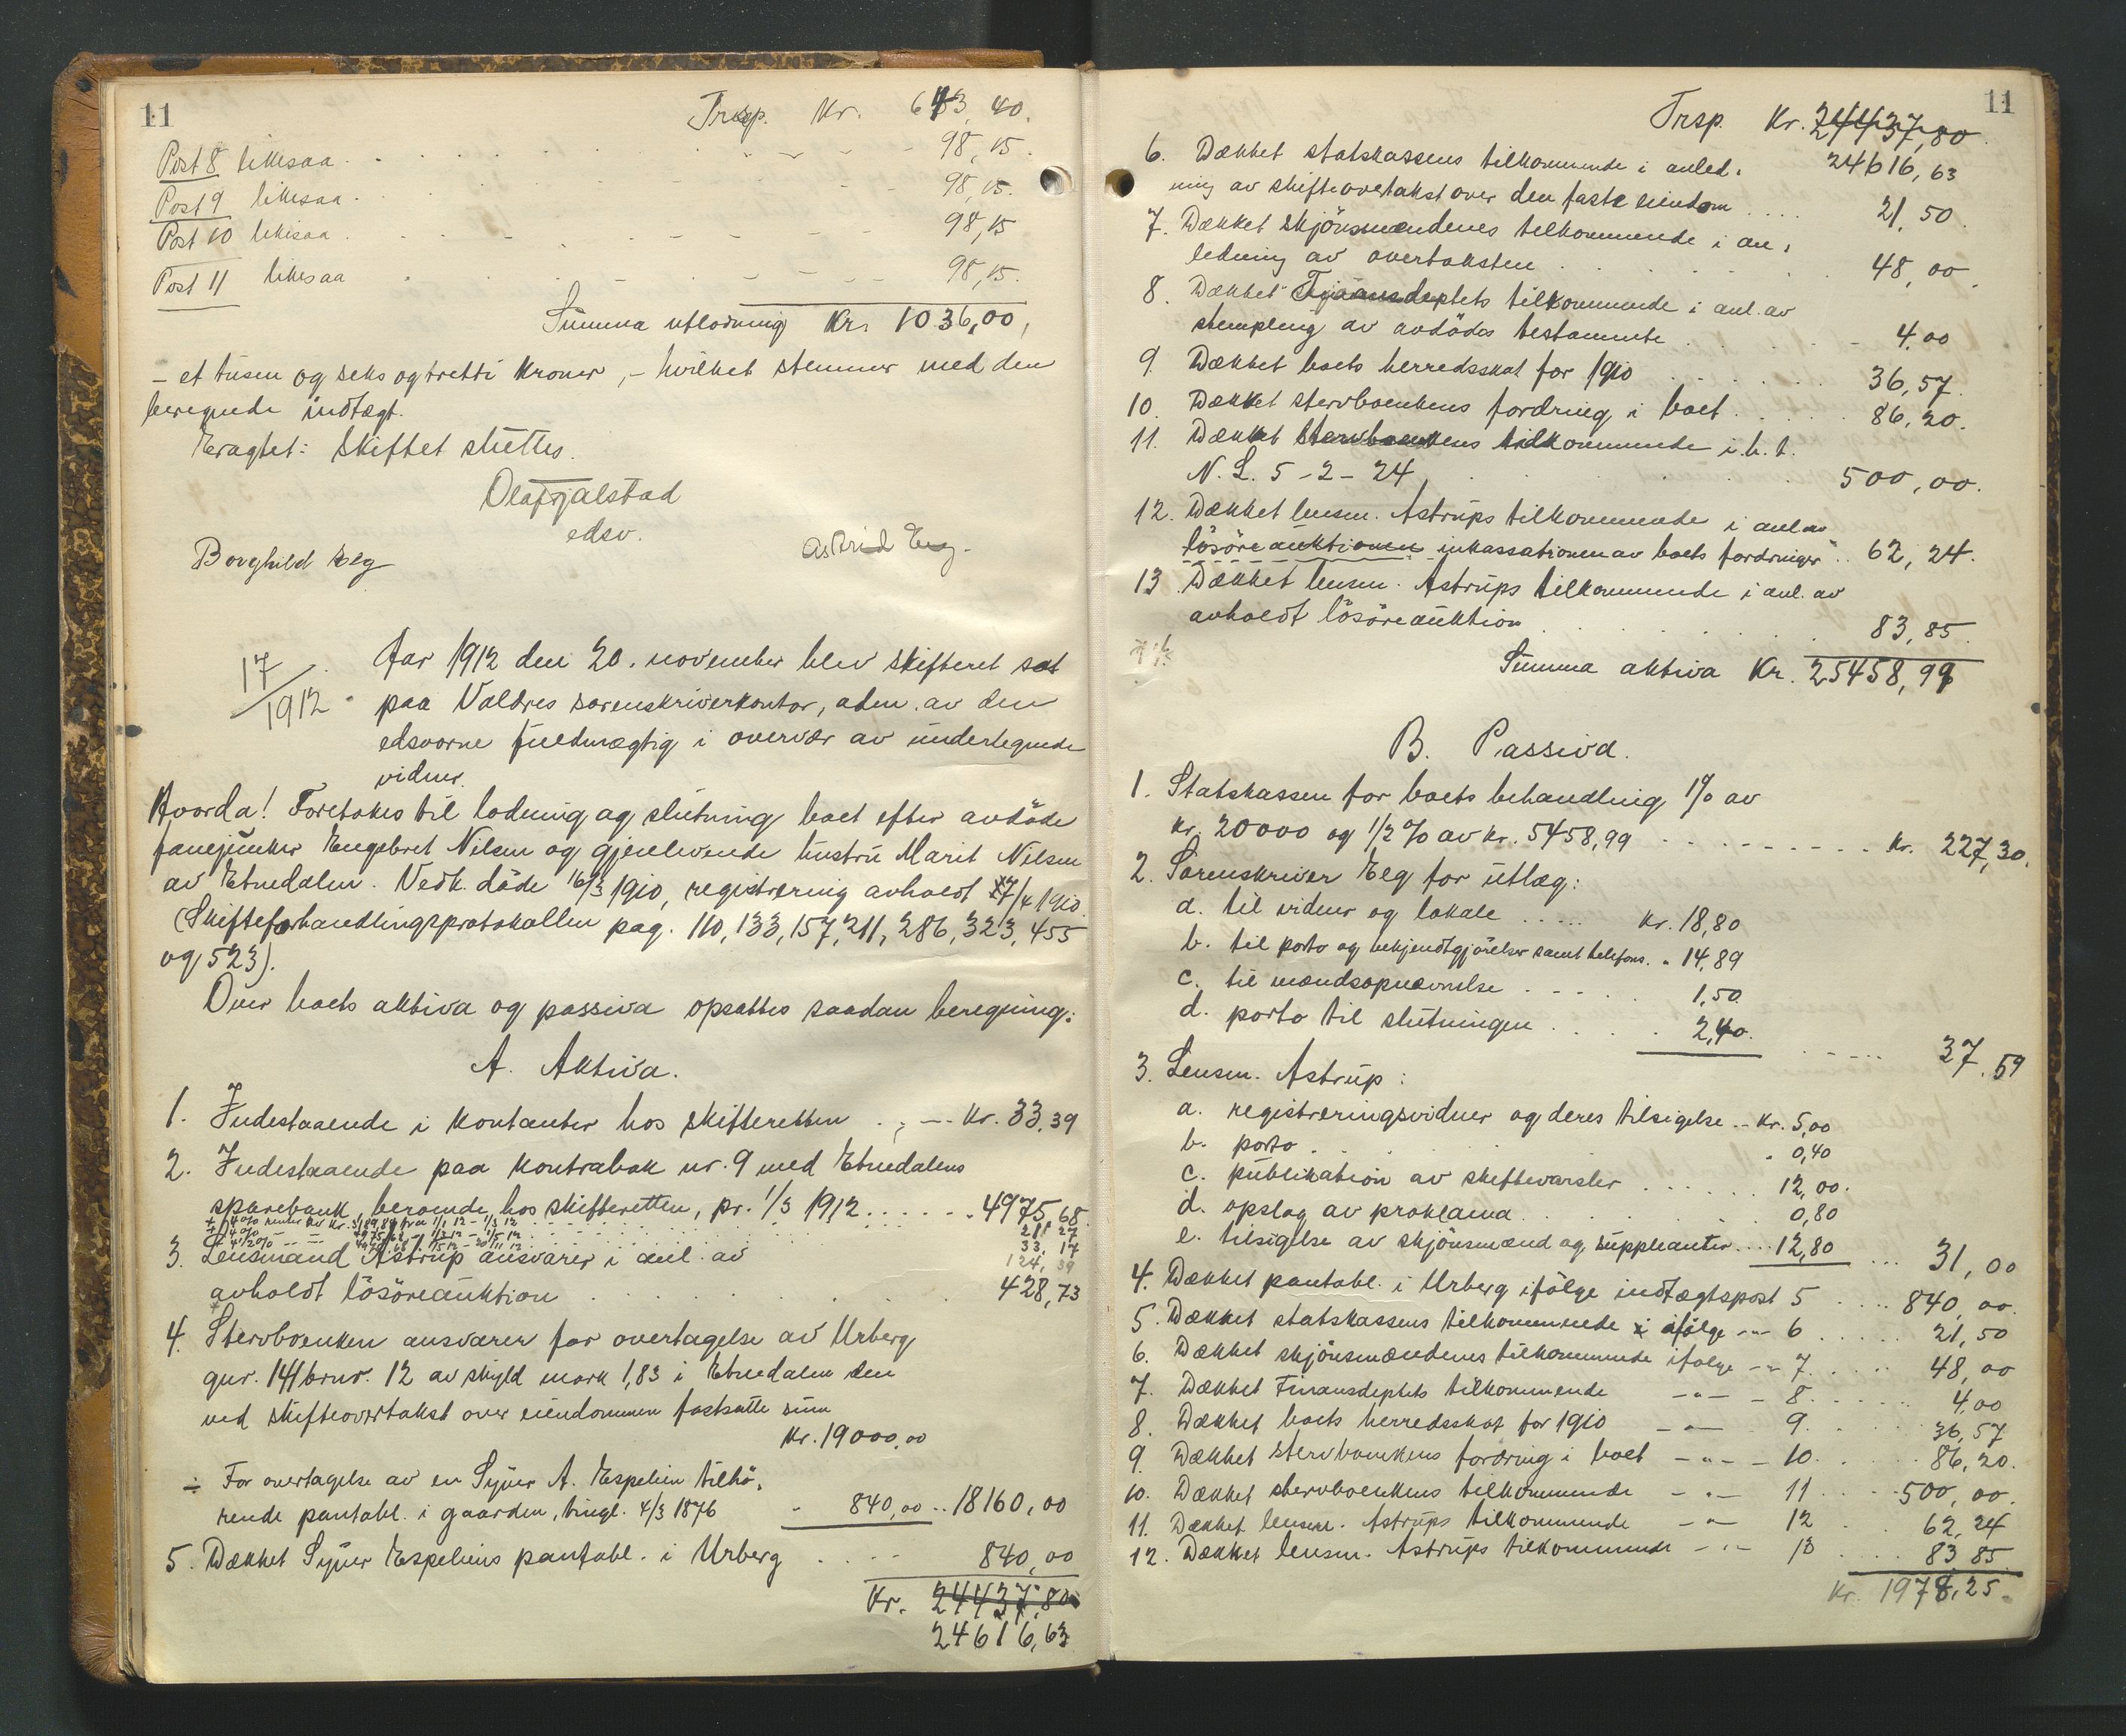 11
Trsp. Kr. 643,40.
Post 8 likesaa 98,15.
Post 9 likesaa 98,15.
Post 10 likesaa 98,15
Post 11 likesaa 98,15.
Summa utlodning Kr. 1036,00,
- et tusen og seks og tretti kroner, - hvilket stemmer med den
beregnede indtægt.
Eragtet: Skiftet sluttes.
Olaf Fjalstad
edsv.
Borghild Elg
Astrid Eng.
17/1912.
Aar 1912 den 20. november blev skifteret sat
paa Valdres sorenskriverkontor, adm. av den
edsvorne fuldmægtig i overvær av undertegnede
vidner.
Hvorda! Foretokes til lodning og slutning boet efter avdöde
fanejunker Engebret Nilsen og gjenlevende hustru Marit Nilsen
av Etnedalen. Vedk. döde 16/3 1910, registrering avholdt 27/4 1910.
(Skifteforhandlingsprotokollen pag. 110, 133, 157, 211, 286, 323, 455
og 523).
Over boets aktiva og passiva opsattes saadan beregning:
A. Aktiva.
1. Indestaaende i kontanter hos skifteretten Kr. 33,39
2. Indestaaende paa kontrabok nr. 9 med Etnedalens
sparebank, beroende hos skifteretten, pr. 1/3 1912 4975,68
+ 4% renter av kr. 3189,84 fra 1/1 12 - 1/3 12 21,27
+ 4% - " - 4975,68 - 1/3 12 - 1/5 12 33,17
+ 4 1/2% - " - 4975,68 1/5 12 - 20/11 12 124,39
3. Lensmand Astrup ansvarer i anl. av
avholdt lösöreauktion 428,73
4. Stervboenken ansvarer for overtagelse av Urberg
gnr. 141 brnr. 12 av skyld mark 1,83 i Etnedalen den
ved skifteovertakst over eiendommen fastsatte sum
Kr. 19000,00
÷ For overtagelse av en Syver A. Espelien tilhö-
rende pantobl. i gaarden, tingl. 4/3 1876 - 840,00 18160,00
5. Dækket Syver Espeliens pantobl. i Urberg 840,00
Kr. 24437,80
24616,63
11
Trsp. Kr. 24437,80
24616,63
6. Dækket statskassens tilkommende i anled-
ning av skifteovertakst over den faste eiendom 21,50
7. Dækket skjönsmændenes tilkommende i an-
ledning av overtaksten 48,00
8. Dækket Finansdeptets tilkommende i anl. av
stempling av avdödes testamente 4,00
9. Dækket boets herredsskat for 1910 36,57.
10. Dækket stervboenkens fordring i boet 86,20.
11. Dækket stervboenkens tilkommende i.h.t.
N. L. 5-2-24 500,00.
12. Dækket lensm. Astrups tilkommende i anl. av
lösöreauktionen inkassationen av boets fordringer 62,24.
13. Dækket lensm. Astrups tilkommende i anl. av
avholdt lösöreauktion 83,85.
Summa aktiva Kr. 25458,99
B. Passiva.
1. Statskassen for boets behandling 1% av
kr. 20000 og 1/2% av kr. 5458,99 Kr. 227,30.
2. Sorenskriver Elg for utlæg:
a. til vidner og lokale Kr. 18,80
b. til porto og bekjendtgjörelser samt telefons. " 14,89
c. til mændsopnævnelse 1,50
d. porto til slutningen 2,40.
37,59
3. Lensm. Astrup:
a. registreringsvidner og deres tilsigelse Kr. 5,00
b. porto " 0,40
c. publikation av skiftevarsler 12,00.
d. opslag av proklama 0,80
e. tilsigelse av skjönsmænd og suppleanter 12,80 31,00
4. Dækket pantobl. i Urberg ifölge indtægtspost 5 840,00.
5. Dækket statskassens tilkommende ifölge -"- 6 21,50
6. Dækket skjönsmændenes tilkommende ifölge -"- 7 48,00
7. Dækket Finansdeptets tilkommende -"- 8 4,00
8. Dækket boets herredsskat for 1910 -"- 9. 36,57
9. Dækket stervboenkens fordring i boet -"- 10. 86,20.
10. Dækket stervboenkens tilkommende -"- 11 500,00.
11. Dækket lensm. Astrups tilkommende -"- 12 62,24
12. Dækket lensm. Astrups tilkommende -"- 13 83,85
Kr. 1978,25.